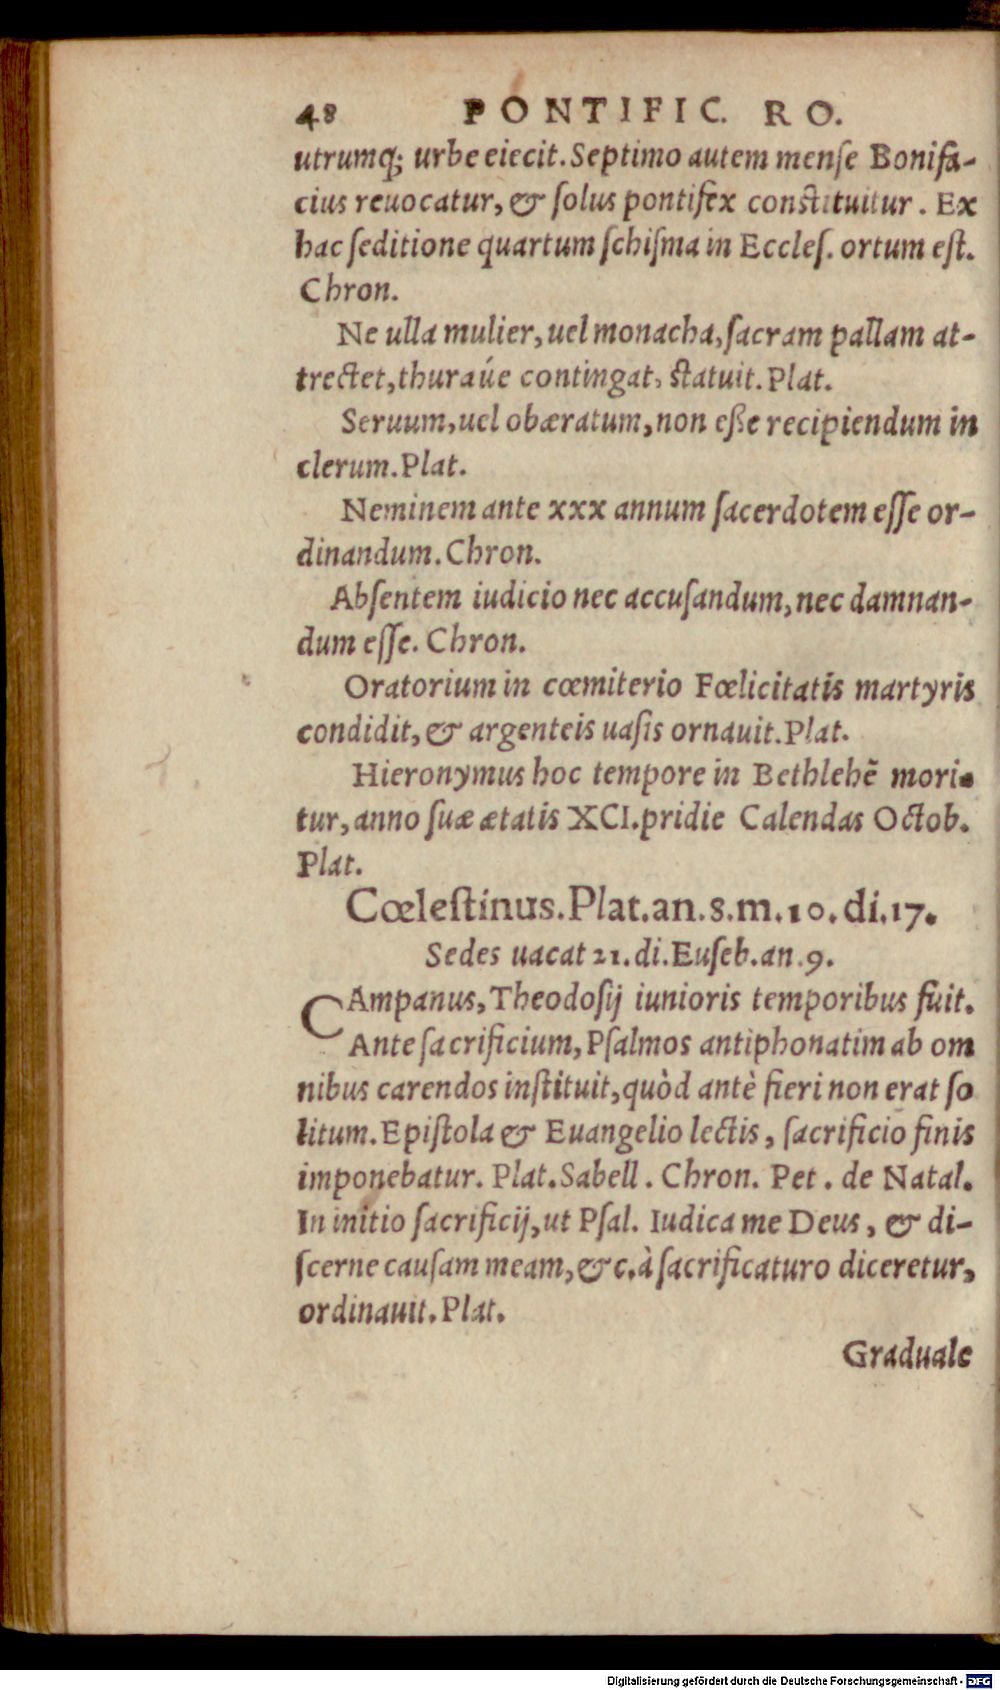 48 PONTIFIC. RO.
utrumq; urbe eiecit. Septimo autem mense Bonifa-
cius reuocatur, & solus pontifex constituitur. Ex
hac seditione quartum schisma in Eccles. ortum est.
Chron.
Ne ulla mulier, uel monacha, sacram pallam at-
trectet, thuraúe contingat, statuit. Plat.
Seruum, uel obæratum, non eße recipiendum in
clerum. Plat.
Neminem ante xxx annum sacerdotem esse or-
dinandum. Chron.
Absentem iudicio nec accusandum, nec damnan-
dum esse. Chron.
Oratorium in cœmiterio Fœlicitatis martyris
condidit, & argenteis uasis ornauit. Plat.
Hieronymus hoc tempore in Bethlehẽ mori-
tur, anno suæ ætatis XCI. pridie Calendas Octob.
Plat.
Cœlestinus. Plat. an. 8. m. 10. di. 17.
Sedes uacat 21. di. Euseb. an. 9.
CAmpanus, Theodosij iunioris temporibus fuit.
Ante sacrificium, Psalmos antiphonatim ab om
nibus carendos instituit, quòd antè fieri non erat so
litum. Epistola & Euangelio lectis, sacrificio finis
imponebatur. Plat. Sabell. Chron. Pet. de Natal.
In initio sacrificij, ut Psal. Iudica me Deus, & di-
scerne causam meam, &c. à sacrificaturo diceretur,
ordinauit. Plat.
Graduale
Digitalisierung gefördert durch die Deutsche Forschungsgemeinschaft - DFG